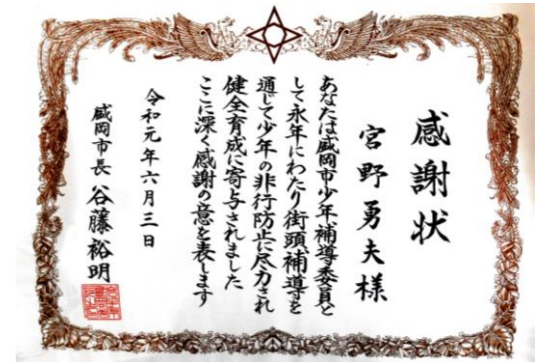 感謝状
宮野勇夫様
あなたは盛岡市少年補導委員と
して永年にわたり街頭補導を
通じて少年の非行防止に尽力され
健全育成に寄与されました
ここに深く感謝の意を表します
令和元年六月三日
盛岡市長 谷藤裕明